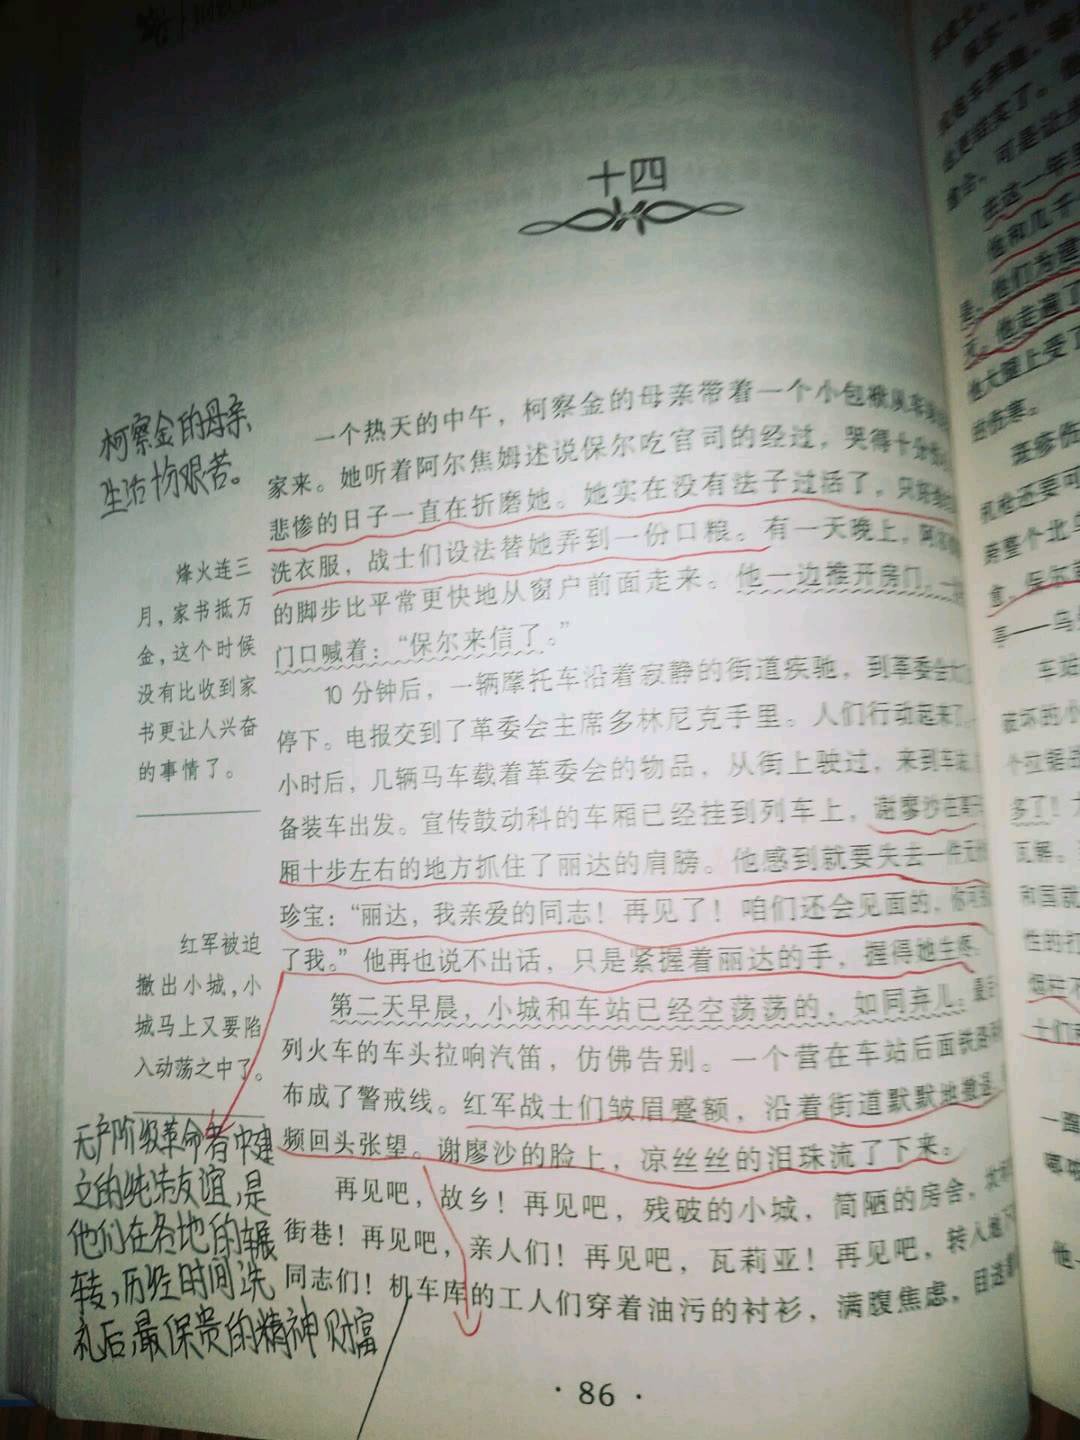 十四
柯察金的母亲
生活十分艰苦。
烽火连三
月，家书抵万
金，这个时候
没有比收到家
书更让人兴奋
的事情了。
红军被迫
撤出小城，小
城马上又要陷
入动荡之中了。
无产阶级革命者中建
立的纯洁友谊，是
他们在各地的辗
转，历经时间洗
礼后，最保贵的精神财富
一个热天的中午，柯察金的母亲带着一个小包袱从车
家来。她听着阿尔焦姆述说保尔吃官司的经过，哭得十分
悲惨的日子一直在折磨她。她实在没有法子过活了，只
洗衣服，战士们设法替她弄到一份口粮。有一天晚上，阿
的脚步比平常更快地从窗户前面走来。他一边推开房门，
门口喊着：“保尔来信了。”
10分钟后，一辆摩托车沿着寂静的街道疾驰，到革委会大
停下。电报交到了革委会主席多林尼克手里。人们行动起来了，
小时后，几辆马车载着革委会的物品，从街上驶过，来到车站，
备装车出发。宣传鼓动科的车厢已经挂到列车上，谢廖沙在离
厢十步左右的地方抓住了丽达的肩膀。他感到就要失去一件
珍宝：“丽达，我亲爱的同志！再见了！咱们还会见面的，你可
了我。”他再也说不出话，只是紧握着丽达的手，握得她生疼。
第二天早晨，小城和车站已经空荡荡的，如同弃儿。最
列火车的车头拉响汽笛，仿佛告别。一个营在车站后面铁路
布成了警戒线。红军战士们皱眉蹙额，沿着街道默默地撤退，
频回头张望。谢廖沙的脸上，凉丝丝的泪珠流了下来：
再见吧，故乡！再见吧，残破的小城，简陋的房舍，
街巷！再见吧，亲人们！再见吧，瓦莉亚！再见吧，转入地下
同志们！机车库的工人们穿着油污的衬衫，满腹焦虑，目送
·86·
可是让
在这一年里
他和几千
他们为建
他走遍了
他大腿上受了
伤寒。
斑疹伤
机枪还要可
整个北乌
保尔
亭——乌
车站
破坏的小
个拉锯战
多了！
瓦解。
和国就
性的打
烟柱不
士们
一
他